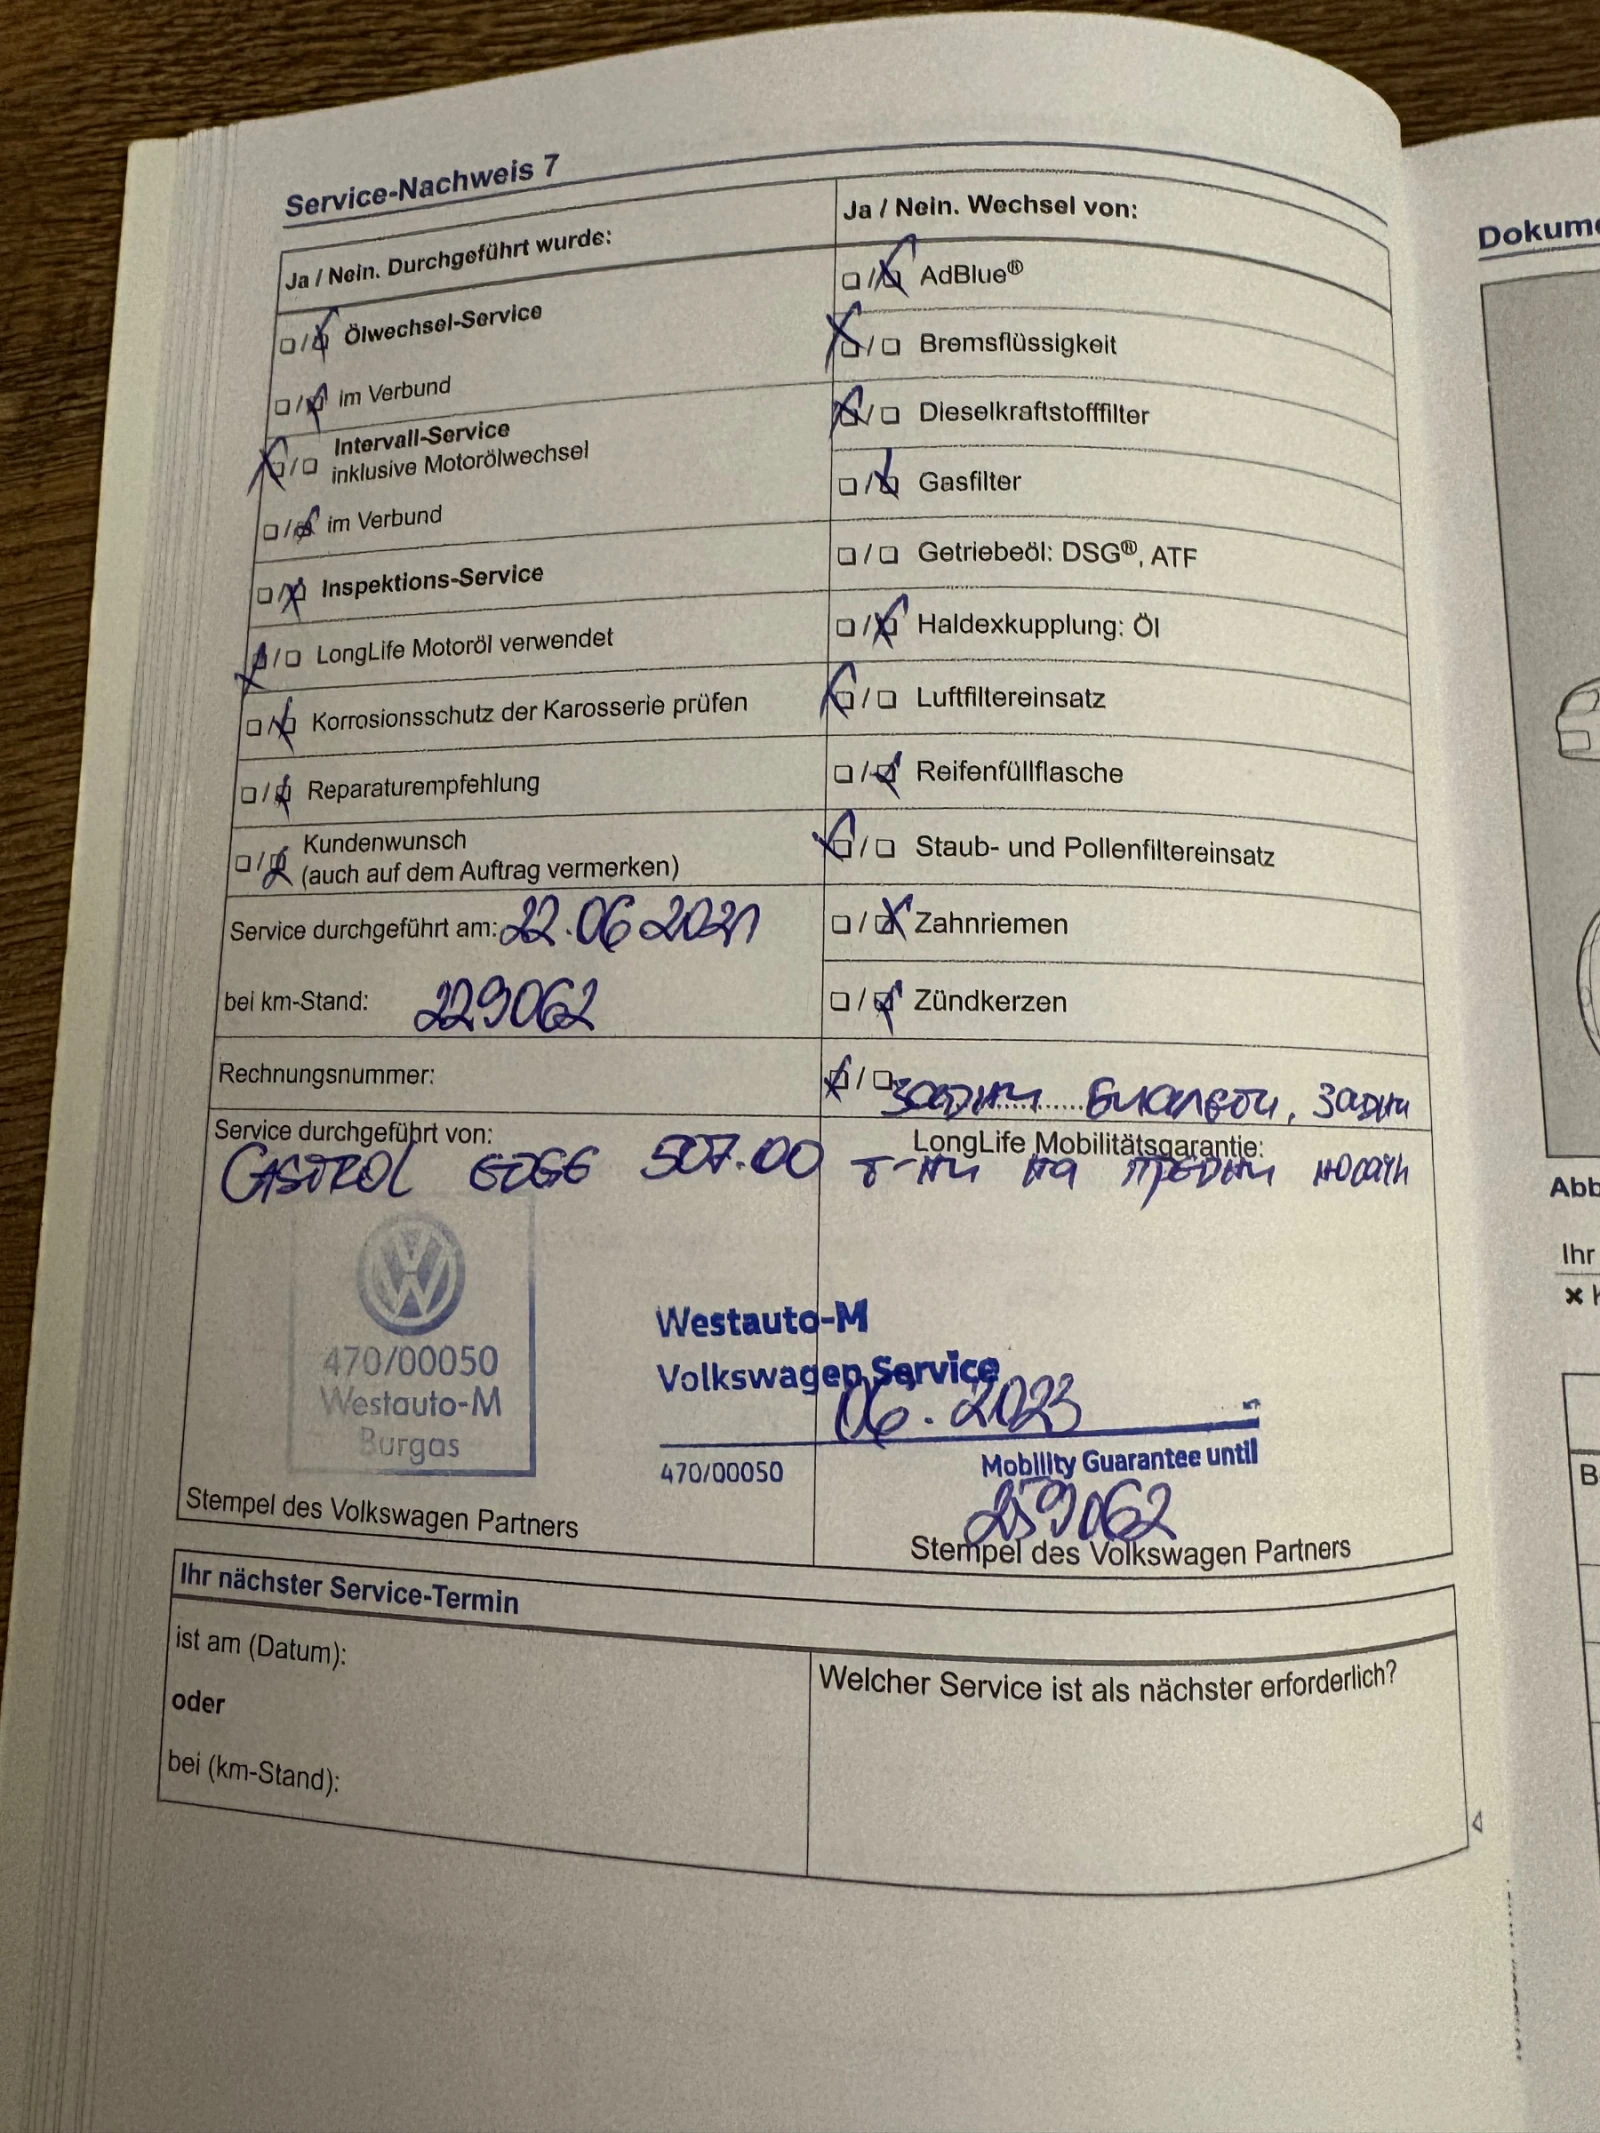 Service-Nachweis 7
Ja / Nein. Durchgeführt wurde:
Ölwechsel-Service
im Verbund
Intervall-Service
inklusive Motorölwechsel
im Verbund
Inspektions-Service
LongLife Motoröl verwendet
Korrosionsschutz der Karosserie prüfen
Reparaturempfehlung
Kundenwunsch
(auch auf dem Auftrag vermerken)
Service durchgeführt am: 22.06 2021
bei km-Stand: 229062
Rechnungsnummer:
Service durchgeführt von:
CASTROL EDGE 507.00
470/00050
Westauto-M
Burgas
Stempel des Volkswagen Partners
Ja / Nein. Wechsel von:
AdBlue®
Bremsflüssigkeit
Dieselkraftstofffilter
Gasfilter
Getriebeöl: DSG®, ATF
Haldexkupplung: Öl
Luftfiltereinsatz
Reifenfüllflasche
Staub- und Pollenfiltereinsatz
Zahnriemen
Zündkerzen
задни биалети, задни
LongLife Mobilitätsgarantie:
т-ни на предни носачи
Westauto-M
Volkswagen Service
06. 2023
470/00050
Mobility Guarantee until
259062
Stempel des Volkswagen Partners
Ihr nächster Service-Termin
ist am (Datum):
oder
bei (km-Stand):
Welcher Service ist als nächster erforderlich?
Dokume
Abb
Ihr